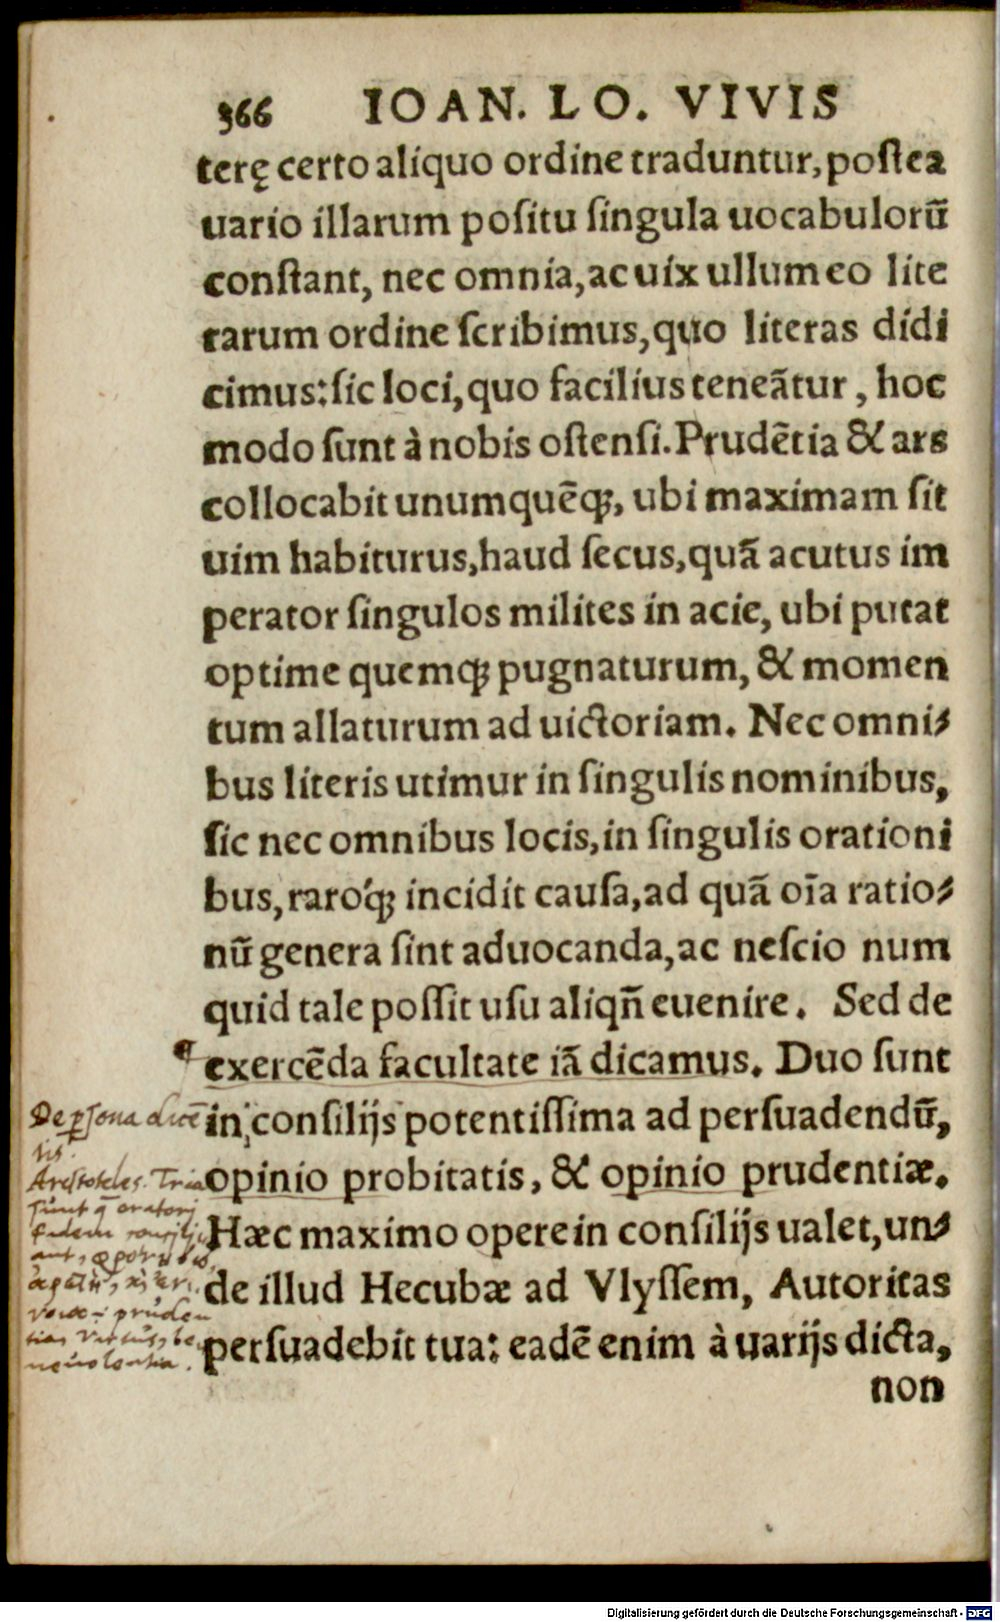 366 IOAN. LO. VIVIS
terę certo aliquo ordine traduntur, poſtea
uario illarum poſitu ſingula uocabulorū
conſtant, nec omnia, ac uix ullum eo lite
rarum ordine ſcribimus, quo literas didi
cimus: ſic loci, quo facilius teneãtur, hoc
modo ſunt à nobis oſtenſi. Prudẽtia & ars
collocabit unumquẽq;, ubi maximam ſit
uim habiturus, haud ſecus, quã acutus im
perator ſingulos milites in acie, ubi putat
optime quemq; pugnaturum, & momen
tum allaturum ad uictoriam. Nec omni-
bus literis utimur in ſingulis nominibus,
ſic nec omnibus locis, in ſingulis orationi
bus, raróq; incidit cauſa, ad quã oĩa ratio-
nũ genera ſint aduocanda, ac neſcio num
quid tale poſſit uſu aliqñ euenire. Sed de
exercẽda facultate iã dicamus. Duo ſunt
in conſilijs potentiſſima ad perſuadendũ,
opinio probitatis, & opinio prudentiæ.
Hæc maximo opere in conſilijs ualet, un-
de illud Hecubæ ad Vlyſſem, Autoritas
perſuadebit tua: eadẽ enim à uarijs dicta,
non
De pſona dicẽ
tis.
Ariſtoteles. Tria
ſunt q̃ oratori
fidem
prũden
tia, virtus, be
neuolentia.
Digitalisierung gefördert durch die Deutsche Forschungsgemeinschaft - DFG